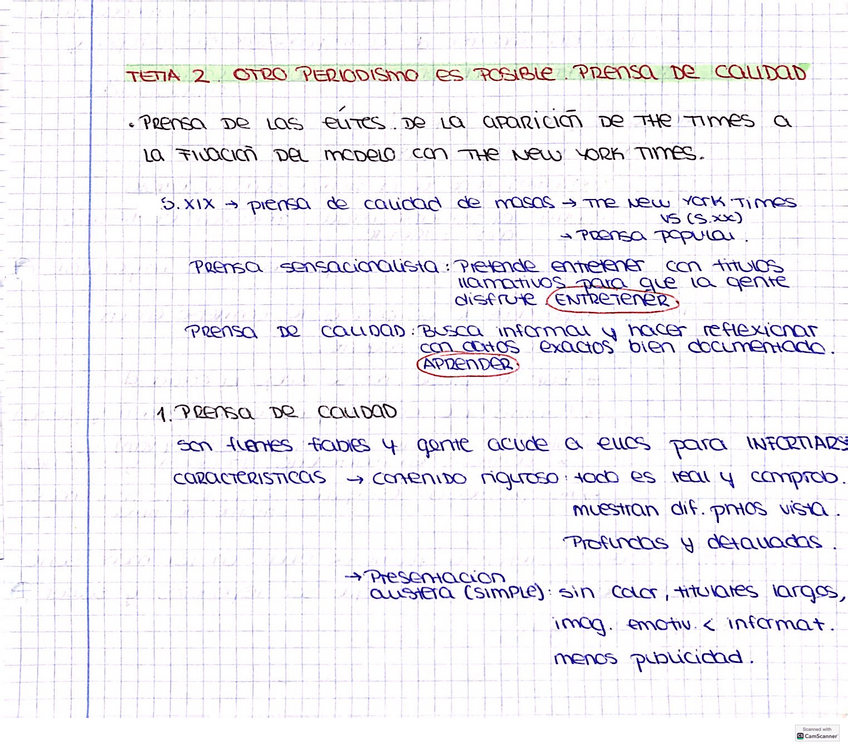 TEMA 2. OTRO PERIODISMO ES POSIBLE. PRENSA DE CALIDAD
• PRENSA DE LAS ELITES. DE LA APARICIÓN DE THE TIMES A
LA FIJACIÓN DEL MODELO CON THE NEW YORK TIMES.
S.XIX → prensa de calidad de masas → THE NEW YORK TIMES
VS (S.XX)
→ PRENSA POPULAR.
PRENSA SENSACIONALISTA: Pretende entretener con titulos
llamativos para que la gente
disfrute (ENTRETENER).
PRENSA DE CALIDAD: Busca informar y hacer reflexionar
con datos exactos bien documentado.
APRENDER.
1. PRENSA DE CALIDAD
son fuentes fiables y gente acude a ellos para INFORMARS
CARACTERISTICAS → CONTENIDO riguroso: todo es real y comprob.
muestran dif. pntos vista.
Profundas y detalladas.
→ Presentacion
austera (simple): sin color, titulares largos,
imag. emotiv. < informat.
menos publicidad.
Scanned with
CamScanner